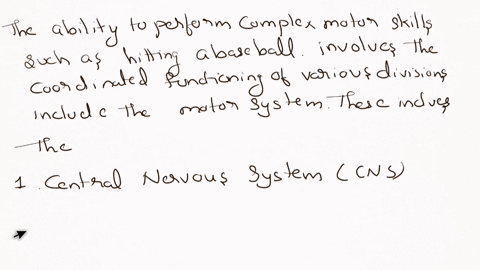 The ability to perform complex motor skills
such as hitting a baseball. involves the
coordinated functioning of various divisions
include the motor system. These indues
the
1. Central Nervous System (CNS)